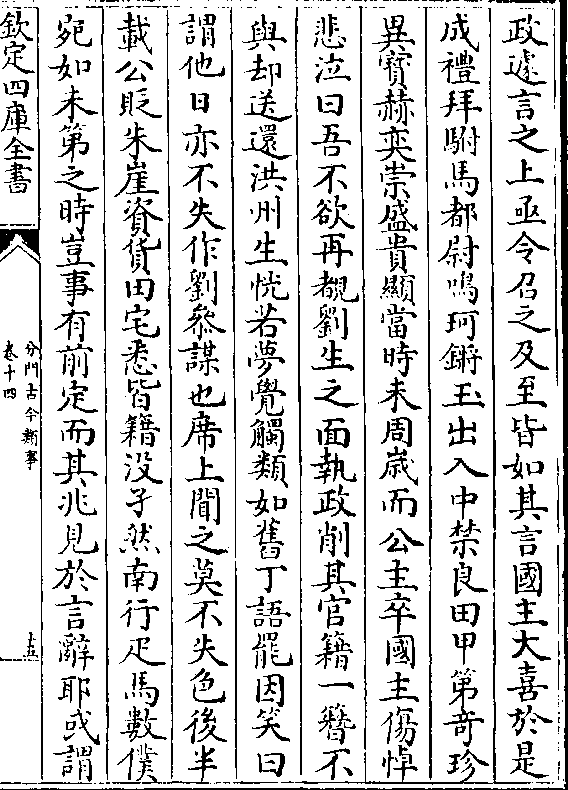 政遽言之上亟令召之及至皆如其言國主大喜於是
成禮拜駙馬都尉鳴珂鏘玉出入中禁良田甲第奇珍
異寳赫奕崇盛貴顯當時未周歲而公主卒國主傷悼
悲泣曰吾不欲再覩劉生之面執政削其官籍一簪不
與却送還洪州生恍若夢覺觸類如舊丁語罷因笑曰
謂他日亦不失作劉參謀也席上聞之莫不失色後半
載公貶朱崖資貨田宅悉皆籍没孑然南行疋馬數僕
宛如未第之時豈事有前定而其兆見於言辭耶或謂
欽定四庫全書
分門古今類事
卷十四
十五